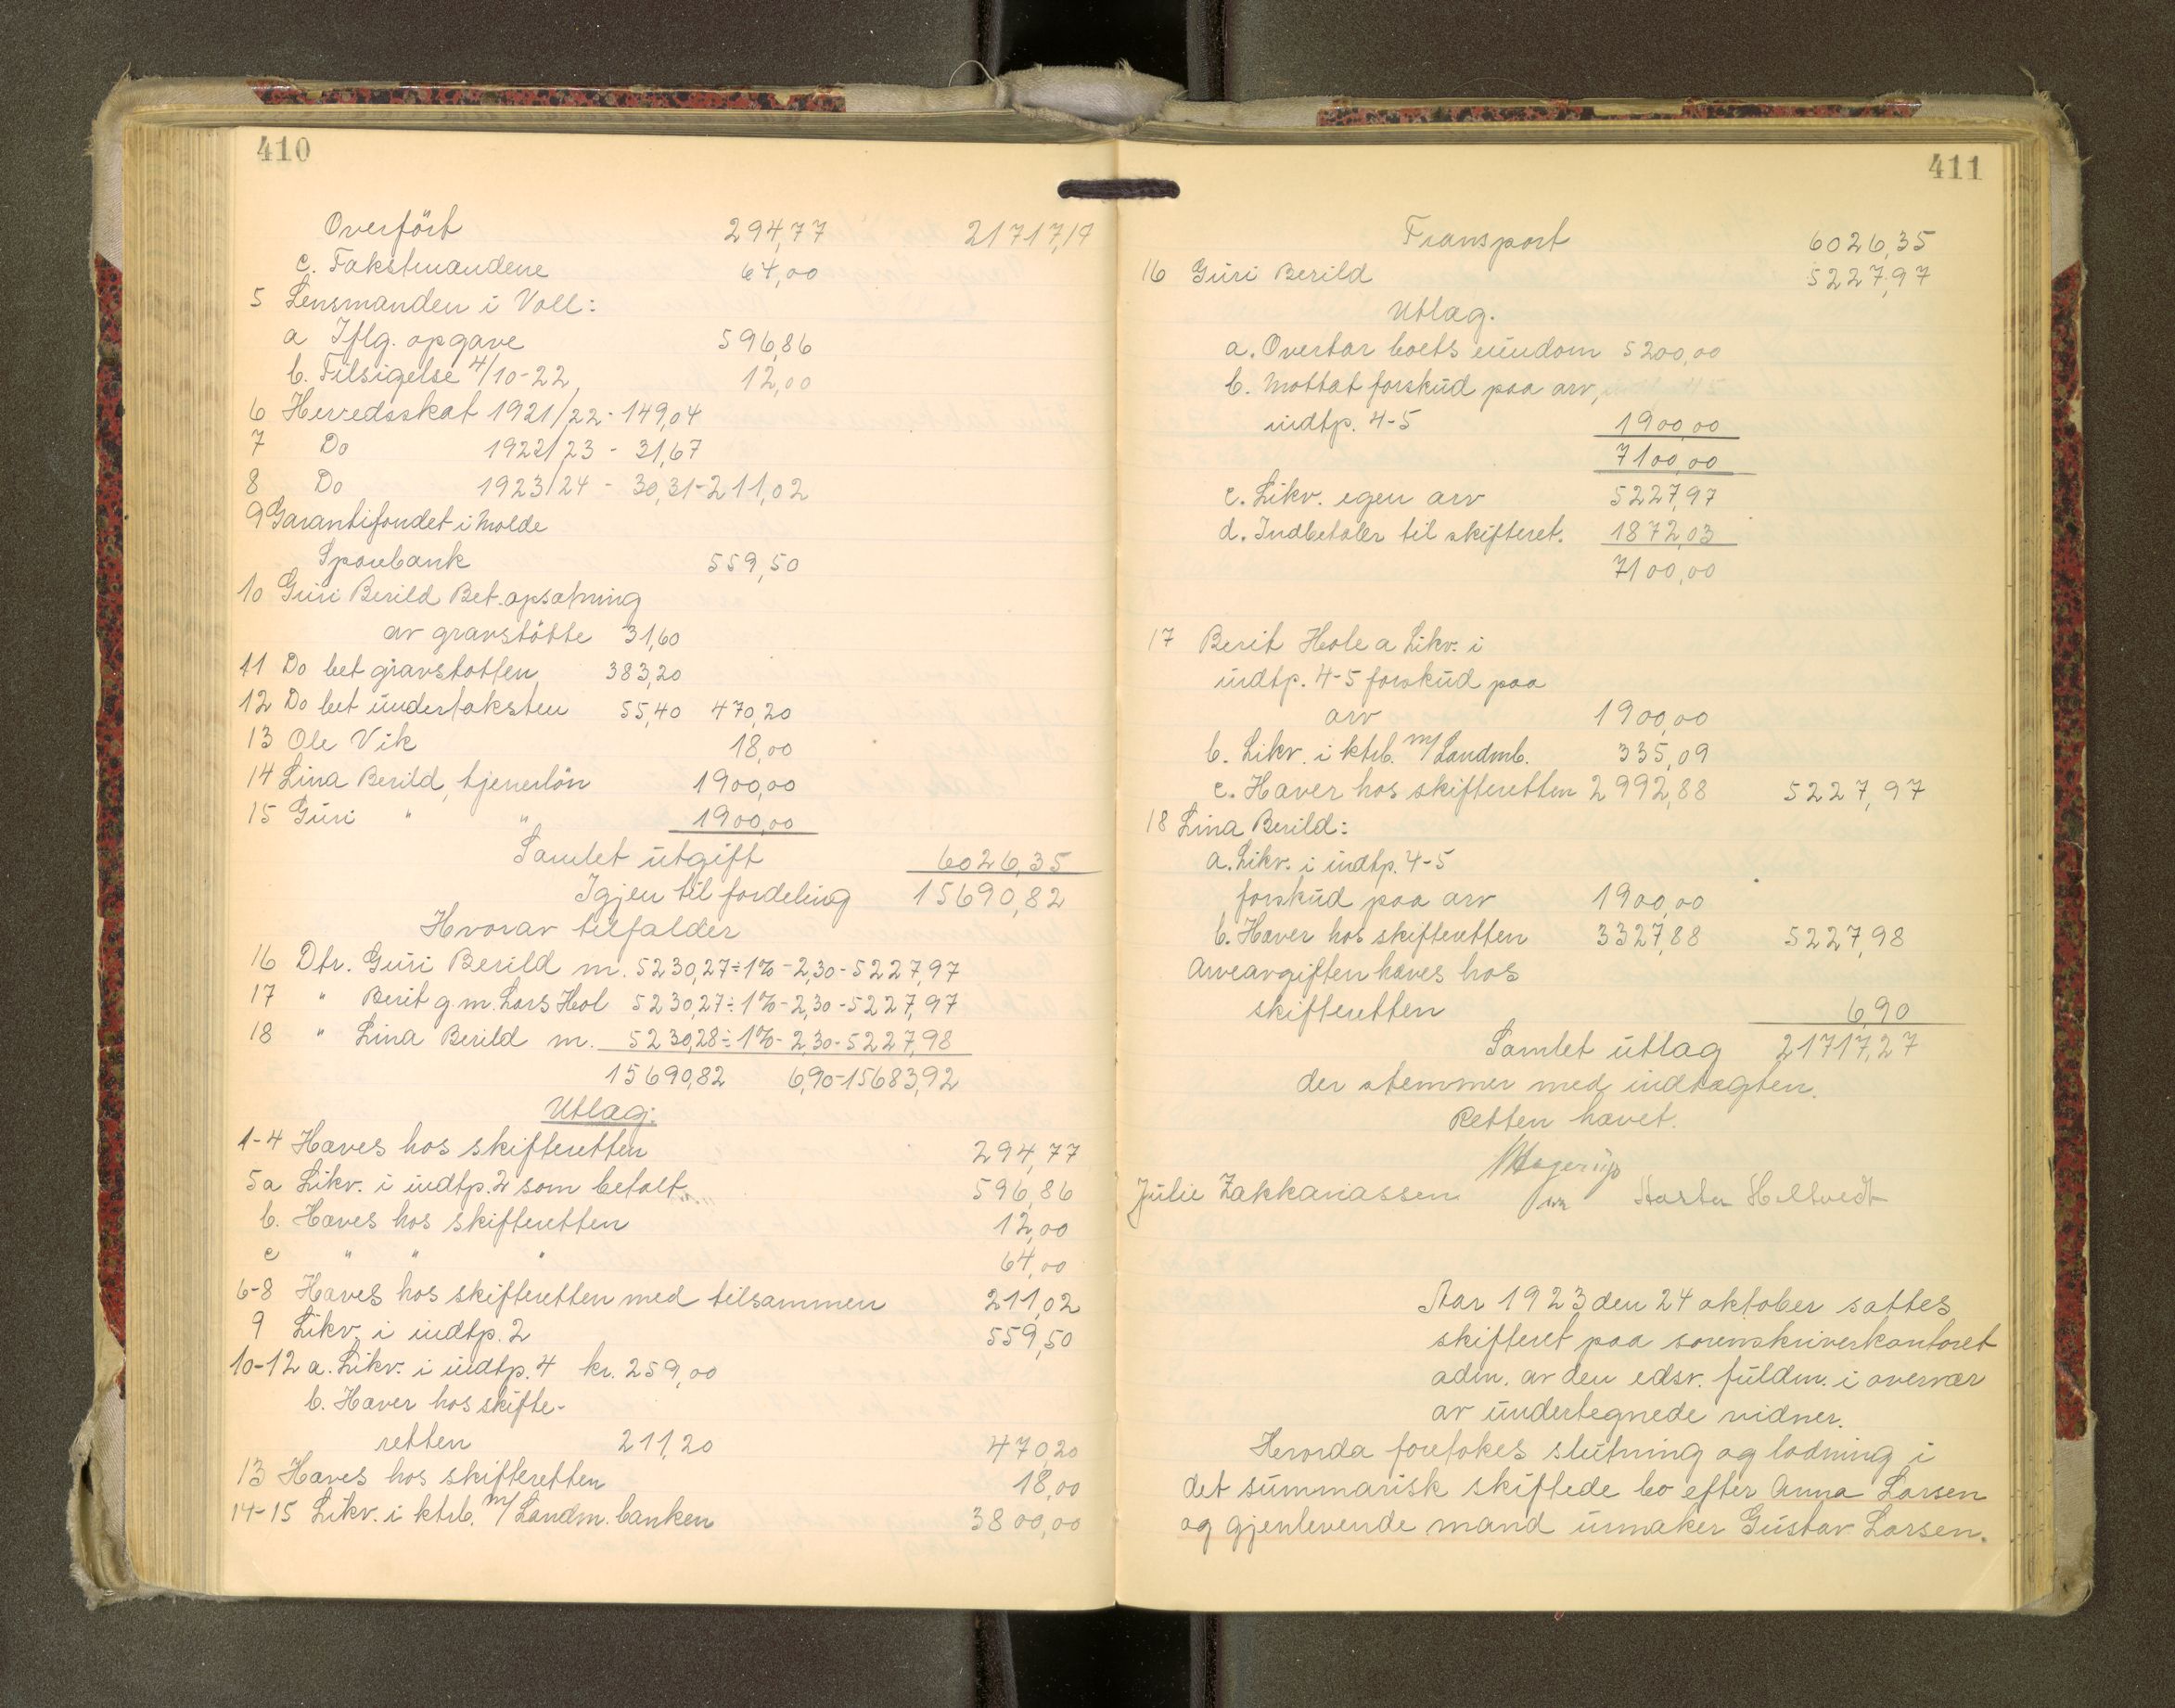 410
Overfört 294,77 21717,17
c. Takstmandene 64,00
5 Lensmanden i Voll:
a Iflg. opgave 596,86
b. Tilsigelse 4/10-22 12,00
6 Herredsskat 1921/22 - 149,04
7 Do 1922/23 - 31,67
8 Do 1923/24 - 30,31 - 211,02
9 Garantifondet i Molde
Sparebank 559,50
10 Guri Berild Bet. opsatning
av gravstötte 31,60
11 Do bet gravstotten 383,20
12 Do bet undertaksten 55,40 470,20
13 Ole Vik 18,00
14 Lina Berild, tjenerlön 1900,00
15 Guri " " 1900,00
Samlet utgift 6026,35
Igjen til fordeling 15690,82
Hvorav tilfalder
16 Dtr. Guri Berild m. 5230,27 ÷ 1% - 2,30 - 5227,97
17 " Berit g.m. Lars Hol 5230,27 ÷ 1% - 2,30 - 5227,97
18 " Lina Berild m. 5230,28 ÷ 1% - 2,30 - 5227,98
15690,82 6,90 - 15683,92
Utlæg:
1-4 Haves hos skifteretten 294,77
5a Likv. i indtp. 2 som betalt 596,86
b. Haves hos skifteretten 12,00
c " " " 64,00
6-8 Haves hos skifteretten med tilsammen 211,02
9 Likv. i indtp. 2 559,50
10-12 a. Likv. i indtp. 4 kr. 259,00
b. Haver hos skifte-
retten 211,20 470,20
13 Haves hos skifteretten 18,00
14-15 Likv. i ktrb. m/Landm. banken 3800,00
411
Transport 6026,35
16 Guri Berild 5227,97
Utlæg.
a. Overtar boets eiendom 5200,00
b. Mottat forskud paa arv,
indtp. 4-5 1900,00
7100,00
c. Likv. egen arv 5227,97
d. Indbetaler til skifteret. 1872,03
7100,00
17 Berit Hole a Likv. i
indtp. 4-5 forskud paa
arv 1900,00
b. Likv. i ktrb. m/Landmb. 335,09
c. Haver hos skifteretten 2992,88 5227,97
18 Lina Berild:
a. Likv. i indtp. 4-5
forskud paa arv 1900,00
b. Haver hos skifteretten 3327,88 5227,98
Arveavgiften haves hos
skifteretten 6,90
Samlet utlæg 21717,27
der stemmer med indtægten.
Retten hævet.
Hagerup
Julie Zakkariassen Hartv Holtvedt
Aar 1923 den 24 oktober sattes
skifteret paa sorenskriverkontoret
adm. av den edsv. fuldm. i overvær
av undertegnede vidner.
Hvorda foretokes slutning og lodning i
det summarisk skiftede bo efter Anna Larsen
og gjenlevende mand urmaker Gustav Larsen.